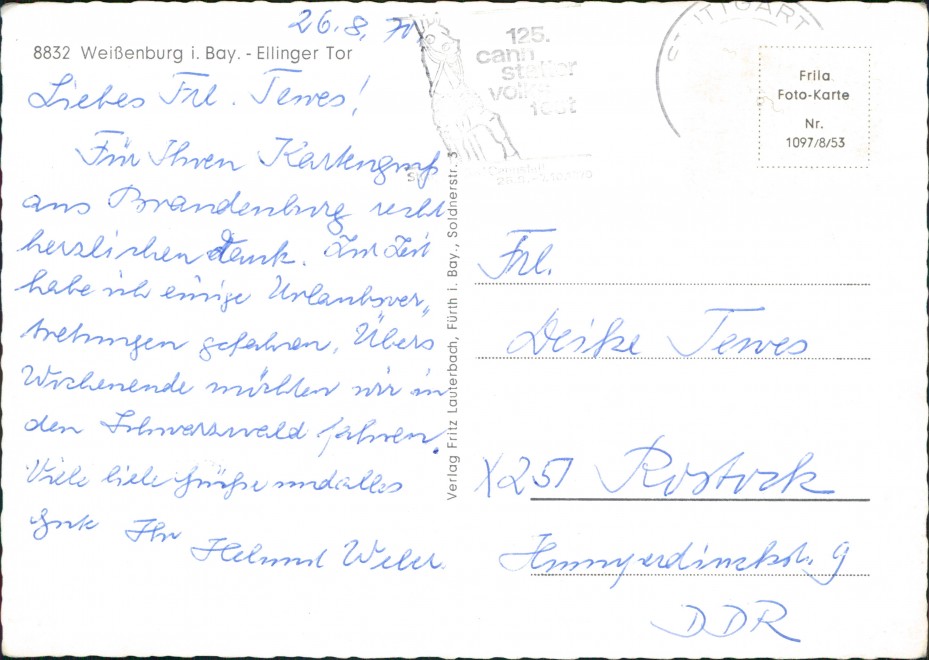 26.8.70
8832 Weißenburg i. Bay. - Ellinger Tor
Liebes Frl. Tewes!
Für Ihren Kartengruß
aus Brandenburg recht
herzlichen Dank. Zur Zeit
habe ich einige Urlaubsver„
tretungen gefahren. Übers
Wochenende möchten wir in
den Schwarzwald fahren.
Viele liebe Grüße und alles
Gute Ihr
Helmut Weber.
Verlag Fritz Lauterbach, Fürth i. Bay., Soldnerstr. 3
125.
cann
statter
volks
fest
STUTTGART
Frila
Foto-Karte
Nr.
1097/8/53
Frl.
Deike Tewes
X251 Rostock
Humperdinckstr. 9
DDR